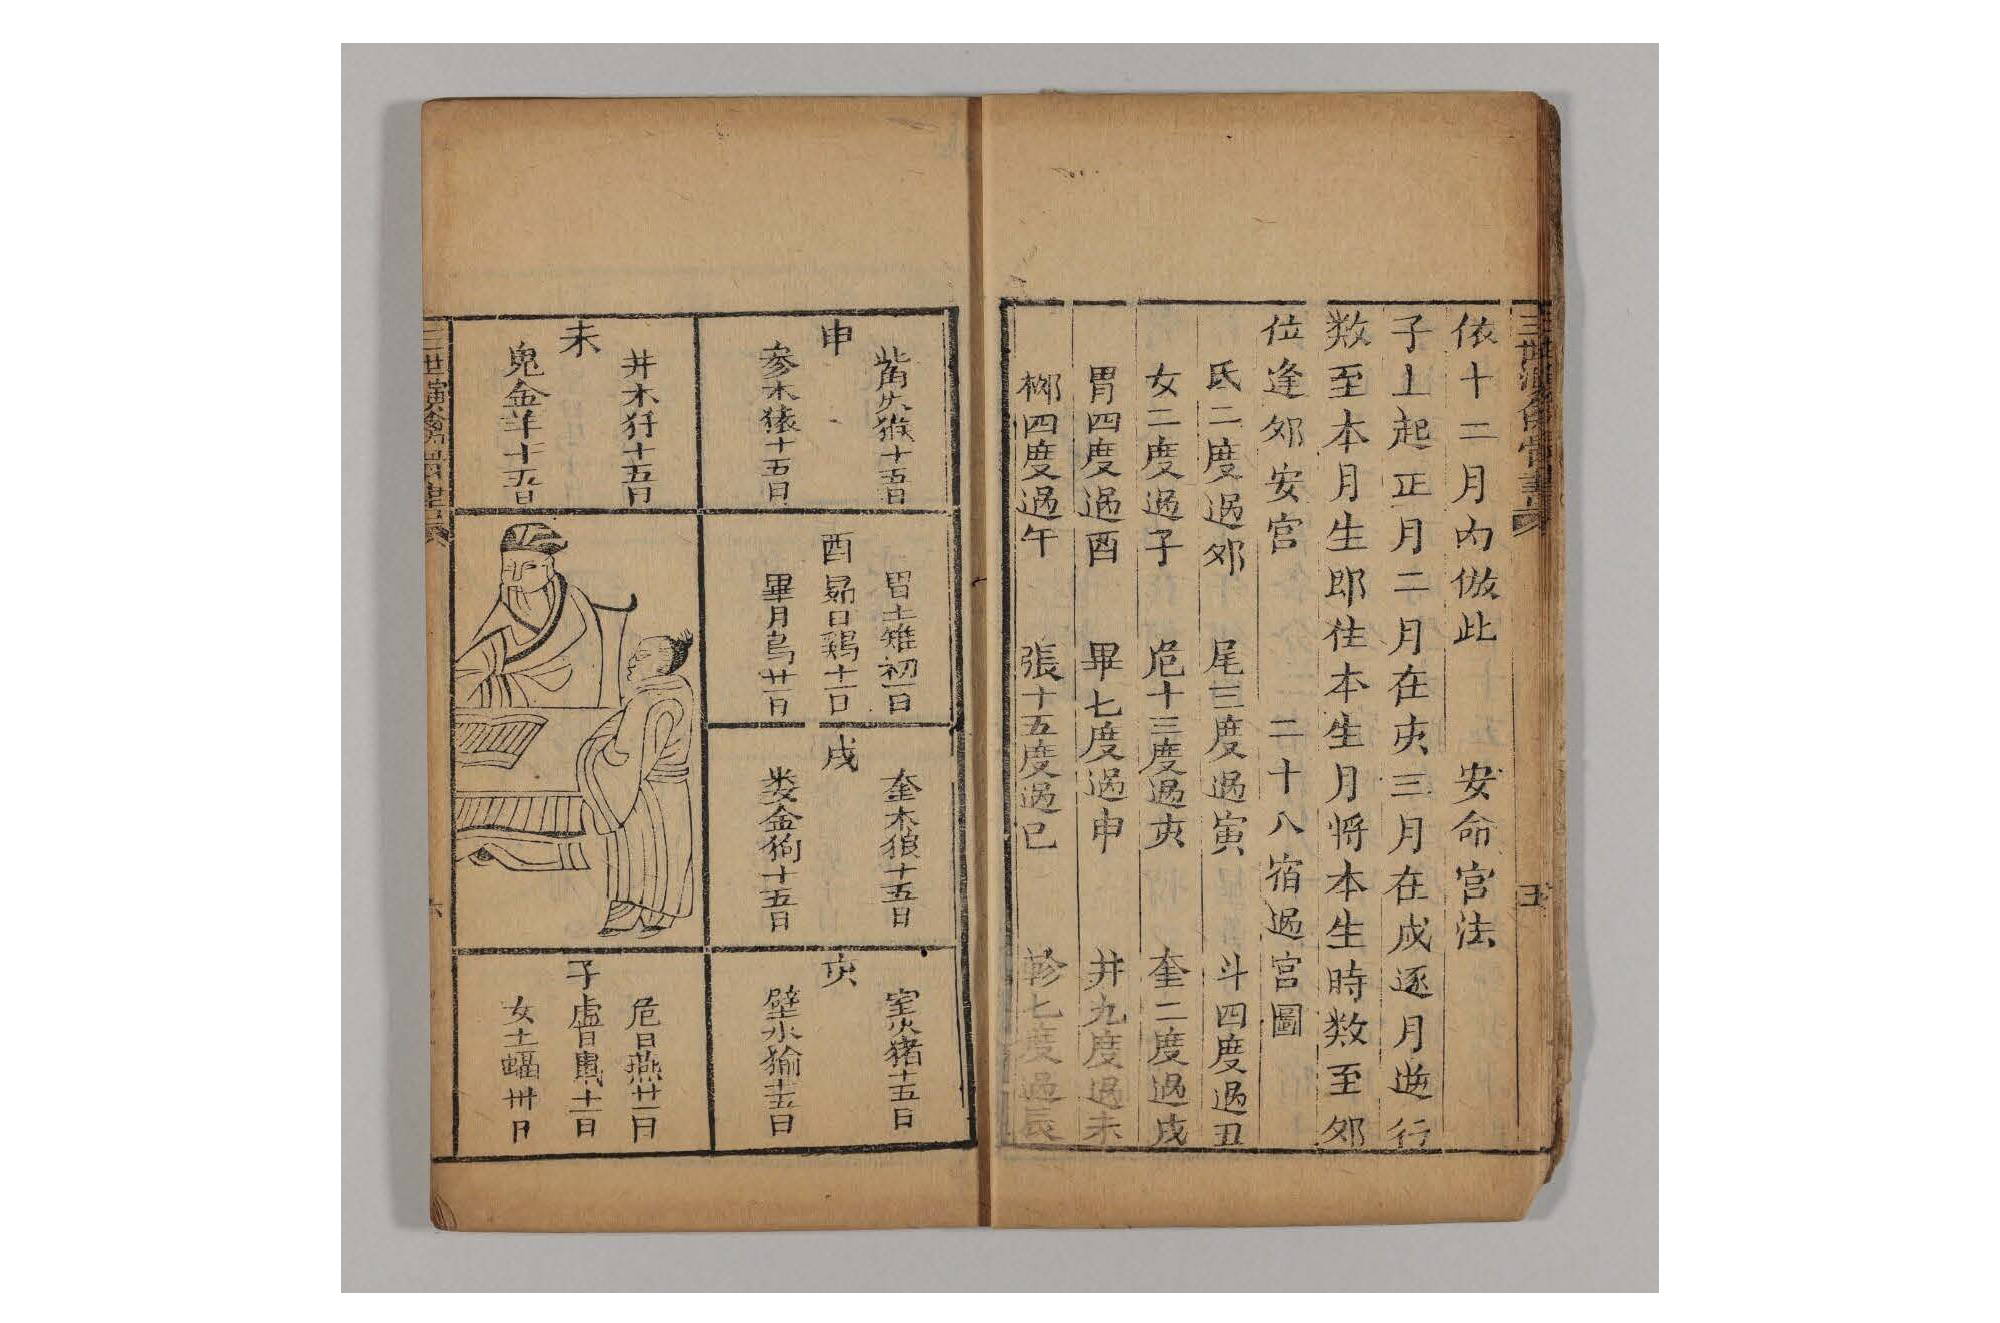 依十二月內倣此　安命宮法
子上起正月二月在亥三月在戌逐月逆行
数至本月生即住本生月将本生時数至夘
位逢夘安宮　二十八宿過宮圖
氐二度過夘　尾三度過寅　斗四度過丑
女二度過子　危十三度過亥　奎二度過戌
胃四度過酉　畢七度過申　井九度過未
柳四度過午　張十五度過巳　軫七度過辰
五
申
觜火猴十五日
參水猿十五日
未
井木犴十五日
鬼金羊十五日
酉
胃土雉初一日
昴日鷄十一日
畢月烏廿一日
戌
奎木狼十五日
婁金狗十五日
亥
室火猪十五日
壁水㺄十五日
子
危日燕廿一日
虛日鼠十一日
女土蝠卅日
六